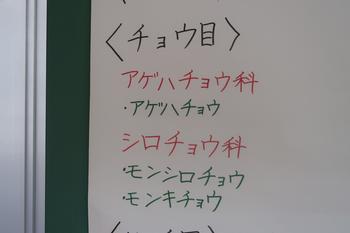 〈チョウ目〉
アゲハチョウ科
・アゲハチョウ
シロチョウ科
・モンシロチョウ
・モンキチョウ